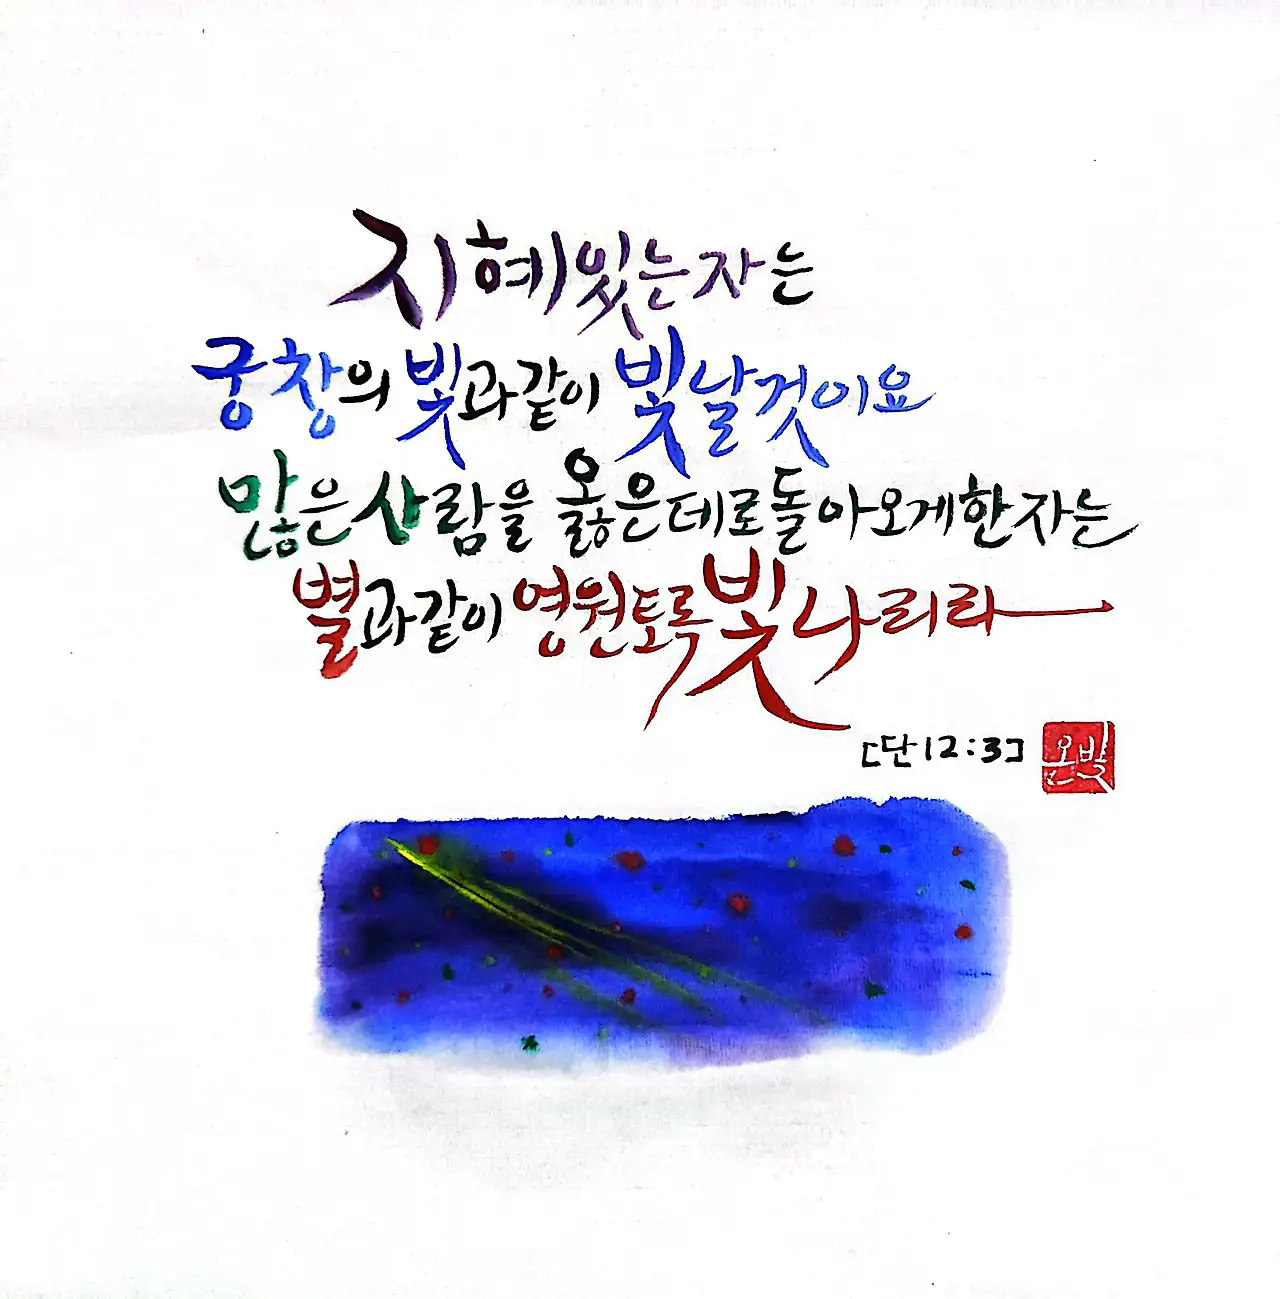 지혜있는자는
궁창의 빛과같이 빛날것이요
많은사람을 옳은데로돌아오게한자는
별과같이 영원토록빛나리라
[단12:3]
온빛